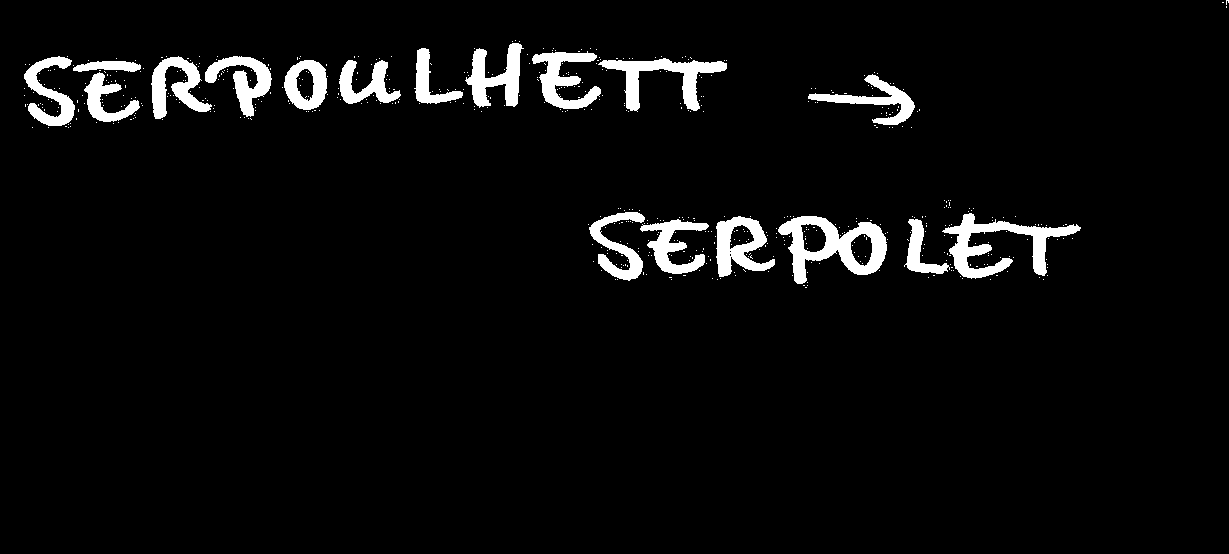 SERPOULHETT →
SERPOLET